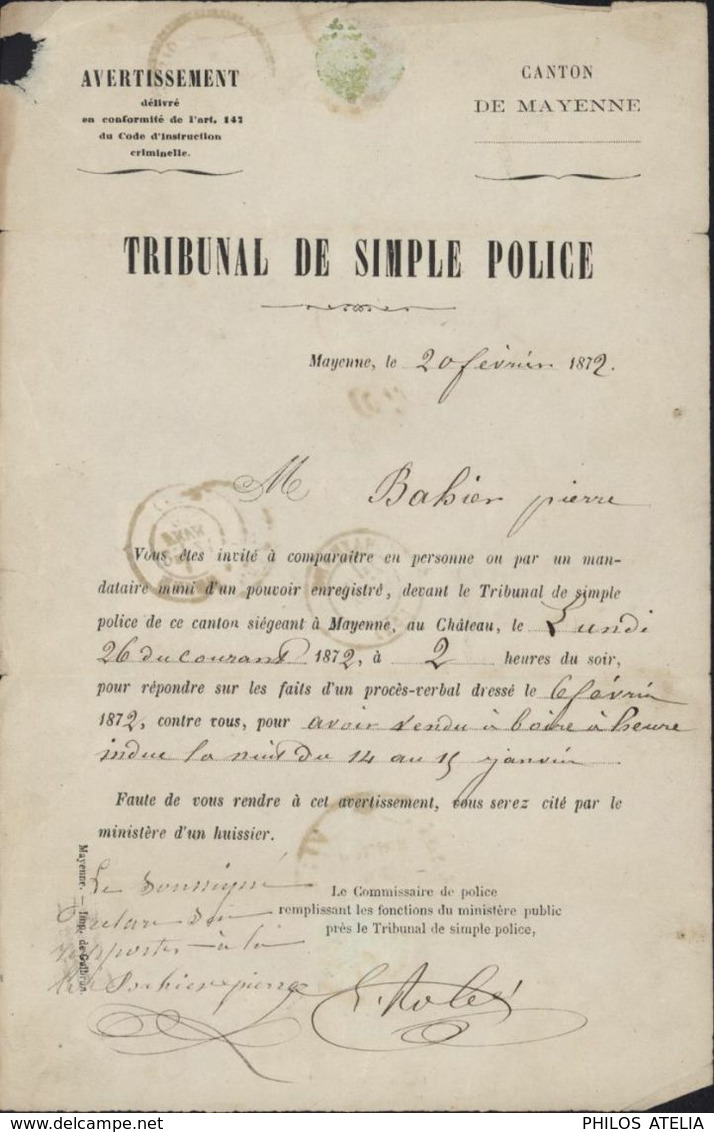 AVERTISSEMENT
délivré
en conformité de l'art. 147
du Code d'instruction
criminelle.
CANTON
DE MAYENNE
TRIBUNAL DE SIMPLE POLICE
Mayenne, le 20 février 1872.
M Bahier pierre
Vous êtes invité à comparaître en personne ou par un man-
dataire muni d'un pouvoir enregistré, devant le Tribunal de simple
police de ce canton siégeant à Mayenne, au Château, le Lundi
26 du courant 1872, à 2 heures du soir,
pour répondre sur les faits d'un procès-verbal dressé le 6 février
1872, contre vous, pour avoir vendu à boire à heure
indue la nuit du 14 au 15 janvier
Faute de vous rendre à cet avertissement, vous serez cité par le
ministère d'un huissier.
Le Commissaire de police
remplissant les fonctions du ministère public
près le Tribunal de simple police,
Le soussigné
déclare s'en
rapporter à la
Bahier pierre
Mayenne. — Imp. de
PHILOS ATELIA